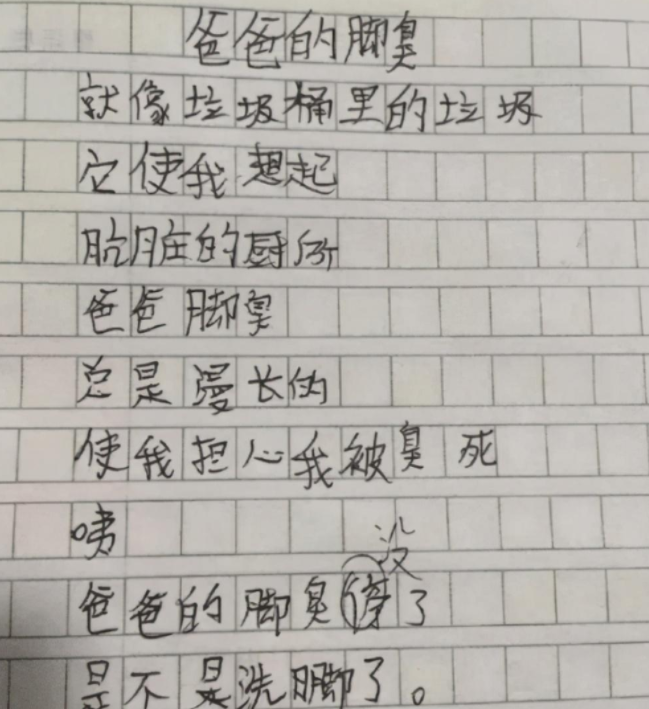 爸爸的脚臭
就像垃圾桶里的垃圾
它使我想起
肮脏的厨所
爸爸脚臭
总是漫长的
使我担心我被臭死
咦
没
爸爸的脚臭停了
是不是洗脚了。